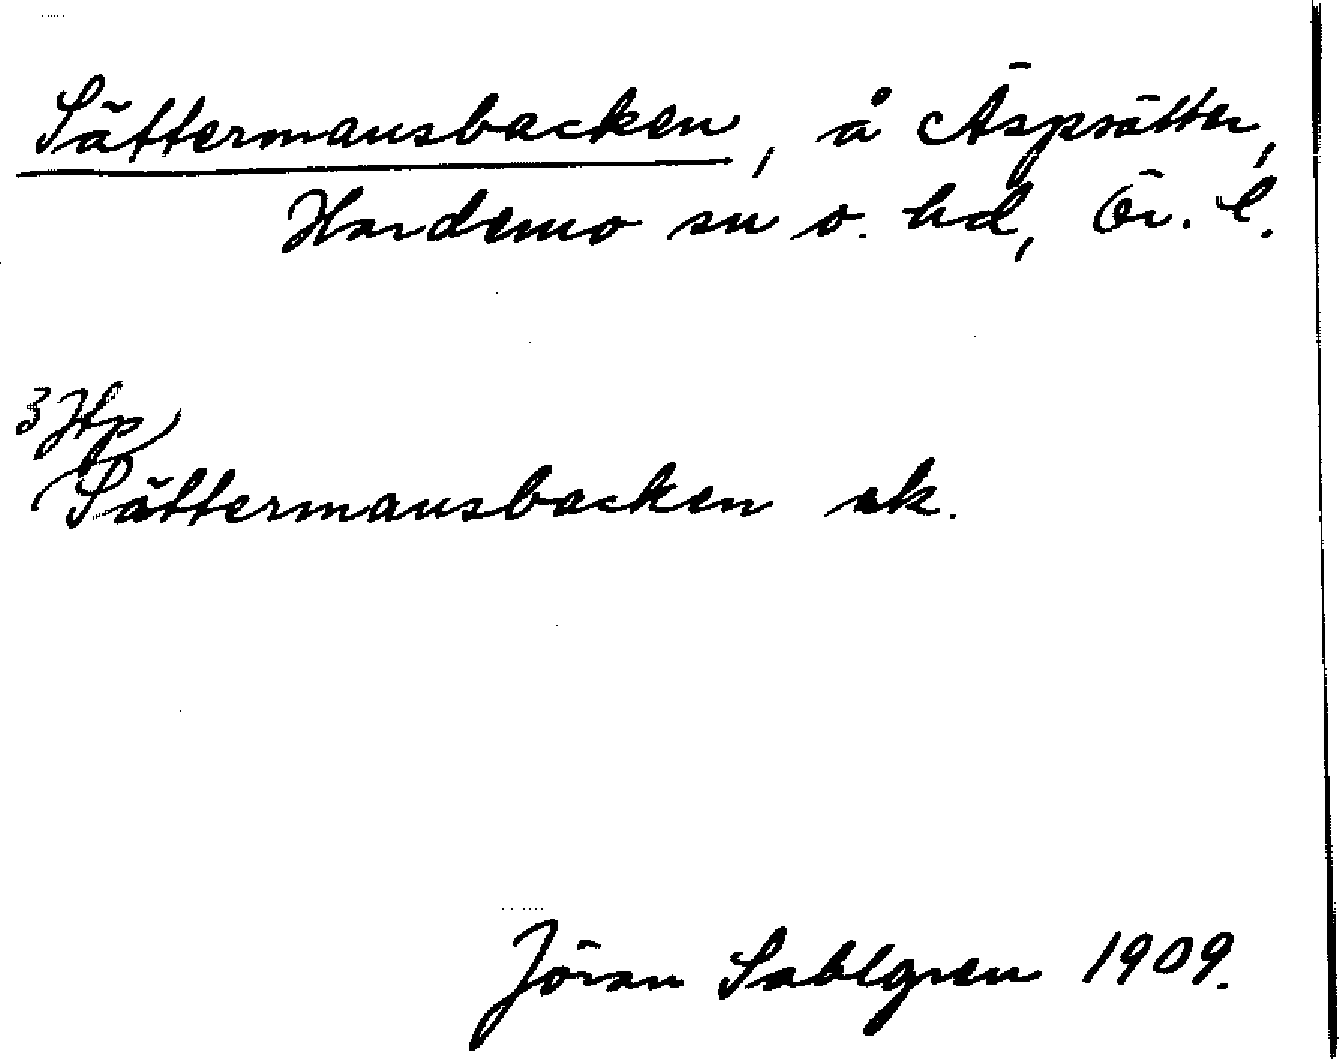 Sättermansbacken, å Äspsätter,
Hardemo sn o. hd, Ör. l.
3 Hp
Sättermansbacken sk.
Jöran Sahlgren 1909.